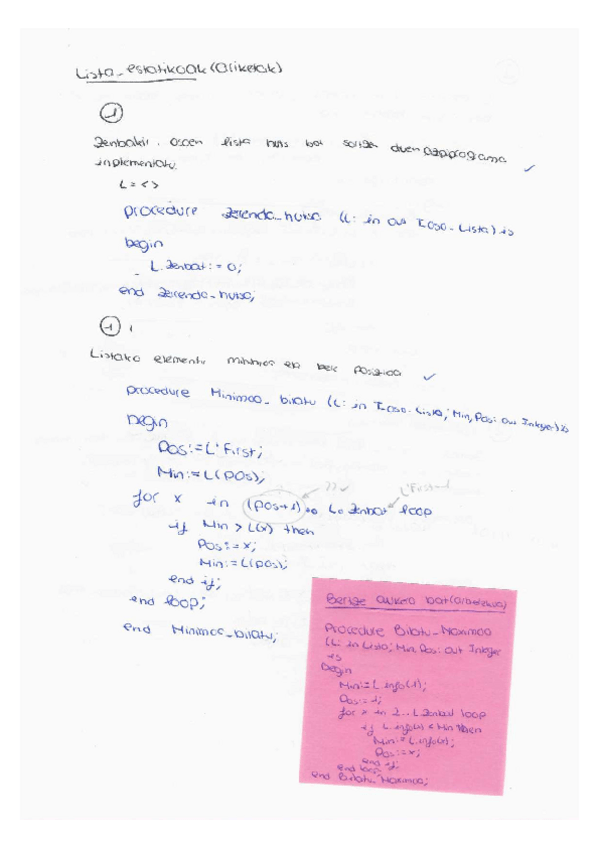 Lista_estatikoak (ariketak)
1
Zenbakiz osaturiko lista huts bat sortzen duen azpiprograma
inplementatu.
L = < >
procedure Zerenda_hutsa (L: in out T_Oso_Lista) is
begin
L.Zenbat := 0;
end Zerenda_hutsa;
1
Listako elementu minimoa eta bere posizioa
procedure Minimoa_bilatu (L: in T_Oso_Lista; Min, Pos: out Integer) is
begin
Pos := L'First;
Min := L(Pos);
for x in (pos+1) to L.Zenbat loop
?? L'First+1
if Min > L(x) then
Pos := x;
Min := L(pos);
end if;
end loop;
end Minimoa_bilatu;
Beraze aukera bat (
Procedure Bilatu_Maximoa
(L: in Lista; Min, Pos: out Integer
is
begin
Min := L.info(1);
Pos := 1;
for x in 2..L.Zenbat loop
if L.info(x) < Min then
Min := L.info(x);
Pos := x;
end if;
end loop;
end Bilatu_Maximoa;